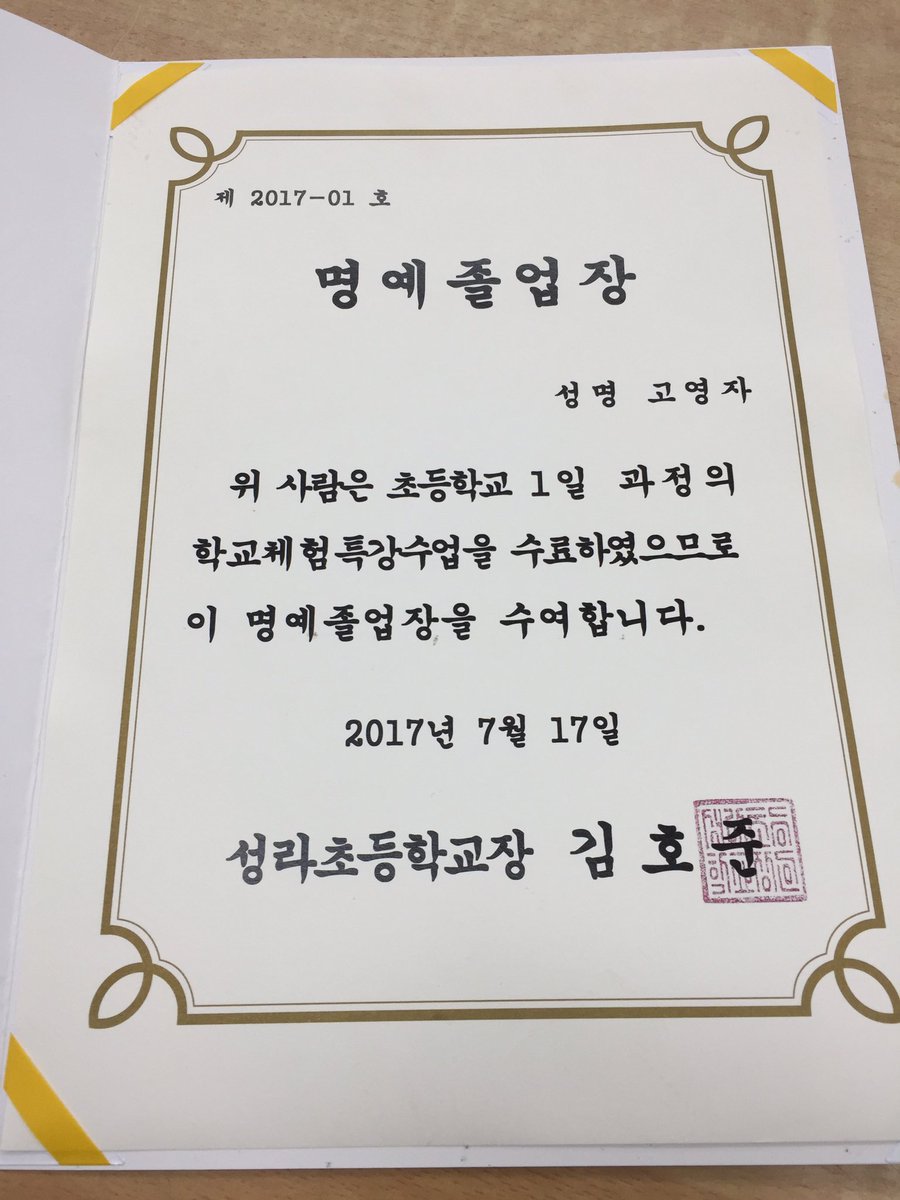 제 2017-01 호
명예졸업장
성명 고영자
위 사람은 초등학교 1일 과정의
학교체험특강수업을 수료하였으므로
이 명예졸업장을 수여합니다.
2017년 7월 17일
성라초등학교장 김호준